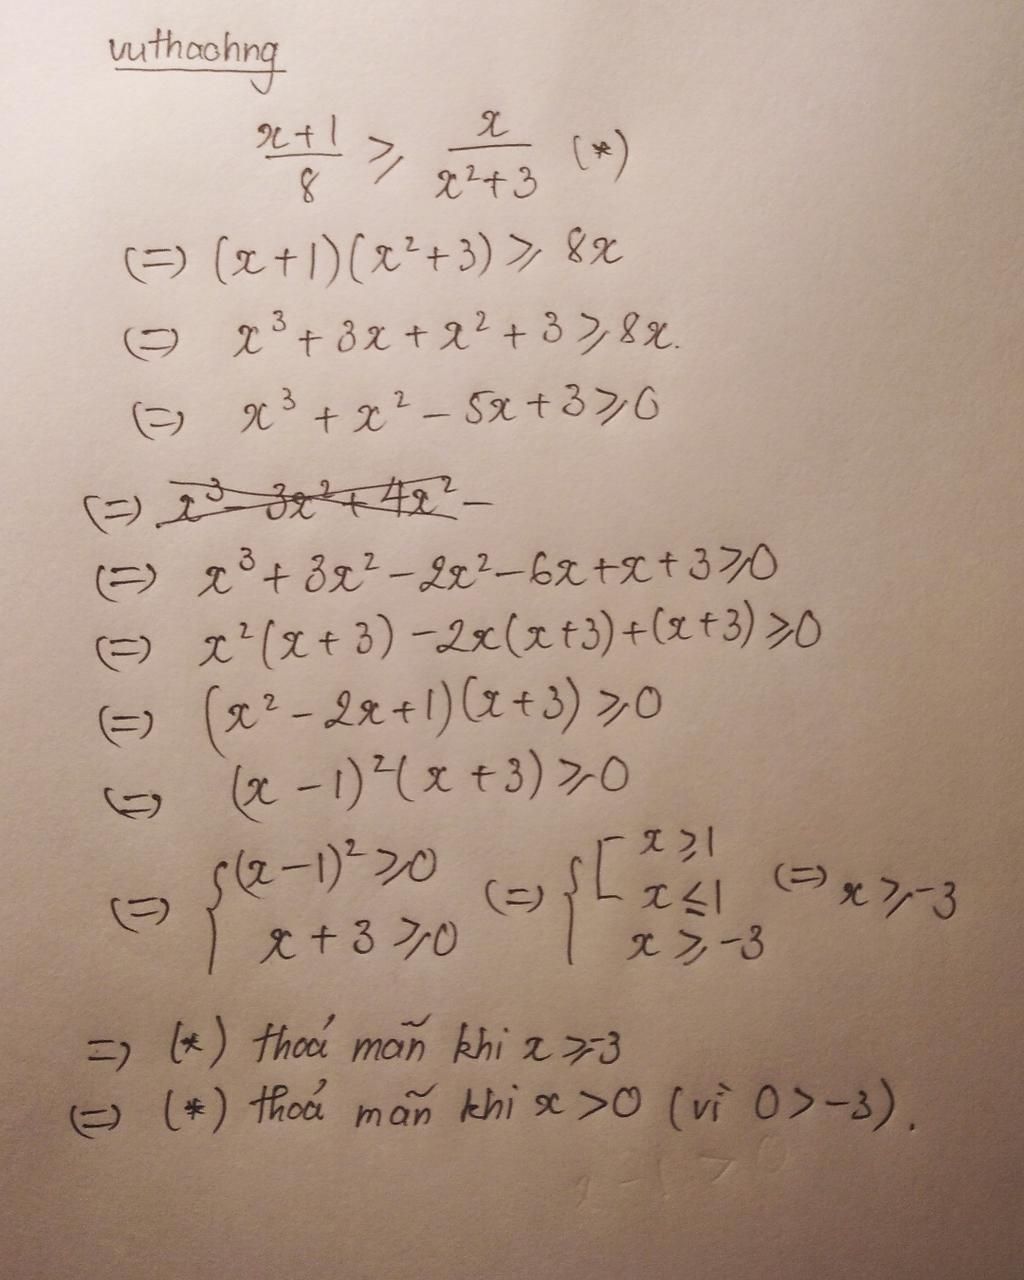 vuthaohng
(x+1)/8 ⩾ x/(x²+3) (*)
(=) (x+1)(x²+3) ⩾ 8x
(=) x³ + 3x + x² + 3 ⩾ 8x.
(=) x³ + x² – 5x + 3 ⩾ 0
(=) x³ – 3x² + 4x² –
(=) x³ + 3x² – 2x² – 6x + x + 3 ⩾ 0
(=) x²(x+3) – 2x(x+3) + (x+3) ⩾ 0
(=) (x² – 2x + 1)(x+3) ⩾ 0
(=) (x – 1)²(x + 3) ⩾ 0
(=) { (x–1)² ⩾ 0 (=) { [ x ⩾ 1
x ≤ 1 (=) x ⩾ –3
x + 3 ⩾ 0 x ⩾ –3
=> (*) thoả mãn khi x ⩾ -3
(=) (*) thoả mãn khi x > 0 (vì 0 > –3).